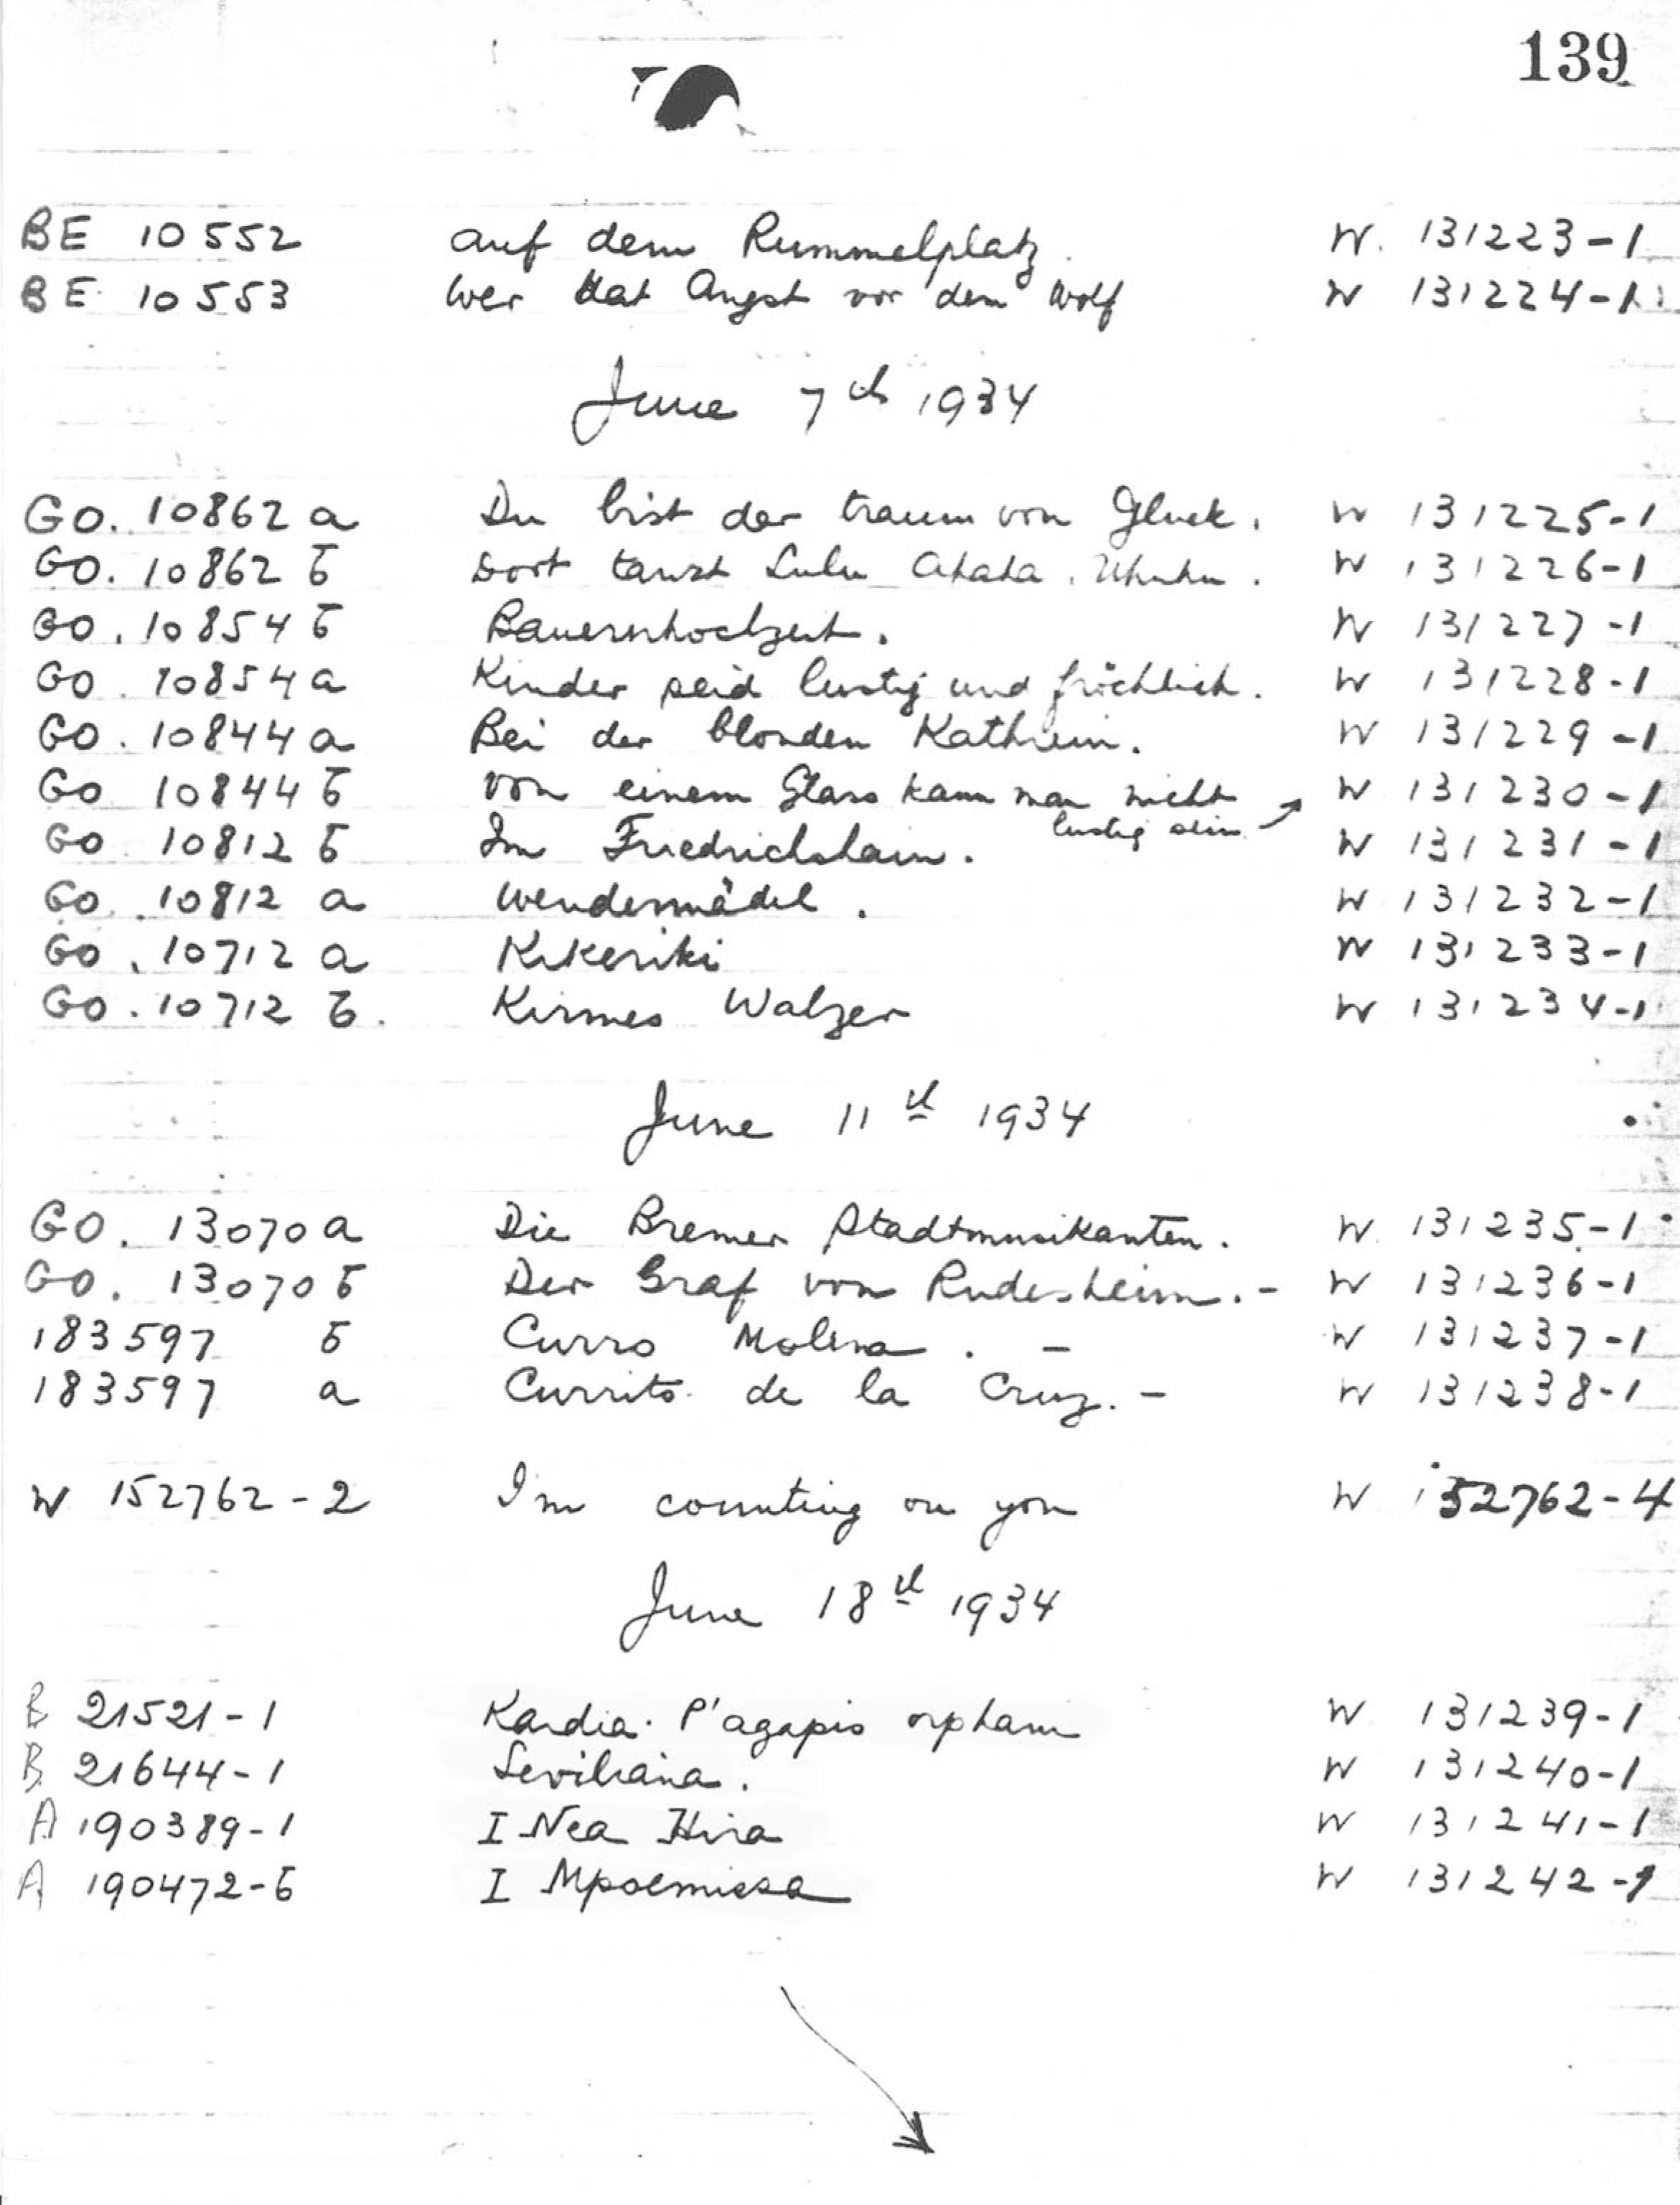 139
BE 10552 auf dem Rummelplatz. W. 131223-1
BE 10553 Wer Hat Angst vor dem Wolf W 131224-1
June 7th 1934
GO. 10862 a Du bist der traum von Gluck. W 131225-1
GO. 10862 b Dort tanzt Lulu Ahaha. Uhuhu. W 131226-1
GO. 10854 b Bauernhochzeit. W 131227-1
GO. 10854 a Kinder seid lustig und fröehlich. W 131228-1
GO. 10844 a Bei der blonden Kathrein. W 131229-1
GO 10844 b von einem Glass kann man nicht W 131230-1
lustig sein
GO 10812 b Im Friedrichshain. W 131231-1
GO. 10812 a W 131232-1
GO. 10712 a Kikeriki W 131233-1
GO. 10712 b. Kirmes Walzer W 131234-1
June 11th 1934
GO. 13070 a Die Bremer Stadtmusikanten. W. 131235-1
GO. 13070 b Der Graf von Rudesheim. - W 131236-1
183597 b Curro Molina. - W 131237-1
183597 a Currito de la Cruz. - W 131238-1
W 152762-2 Im counting on you W 152762-4
June 18th 1934
B 21521-1 Kardia P'agapis orphani W 131239-1
B 21644-1 Seviliana. W 131240-1
A 190389-1 I Nea Hira W 131241-1
A 190472-b I Mpoemissa W 131242-1